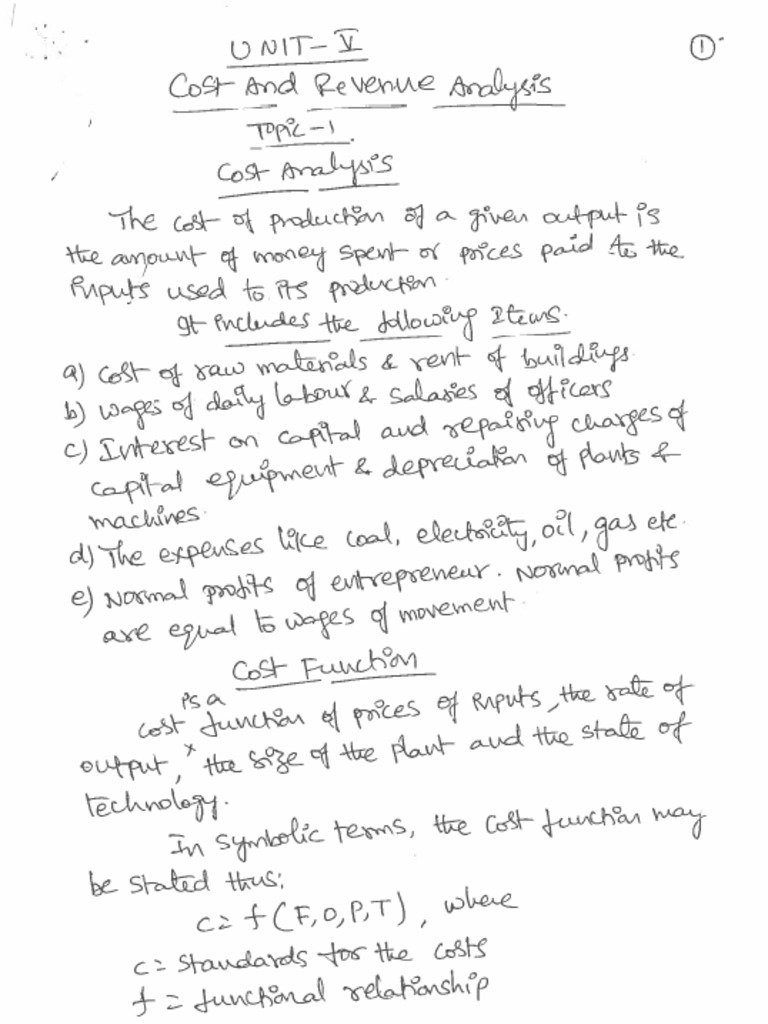 ①
UNIT-V
Cost And Revenue Analysis
Topic-1.
Cost Analysis
The cost of production of a given output is
the amount of money spent or prices paid to the
inputs used to its production.
It includes the following Items.
a) cost of raw materials & rent of buildings.
b) wages of daily labour & salaries of officers
c) Interest on capital and repairing charges of
capital equipment & depreciation of plants &
machines.
d) The expenses like coal, electricity, oil, gas etc.
e) Normal profits of entrepreneur. Normal profits
are equal to wages of movement.
Cost Function
is a
cost function of prices of inputs, the rate of
output, x the size of the plant and the state of
technology.
In symbolic terms, the cost function may
be stated thus:
c = f (F, O, P, T), where
c = standards for the costs
f = functional relationship